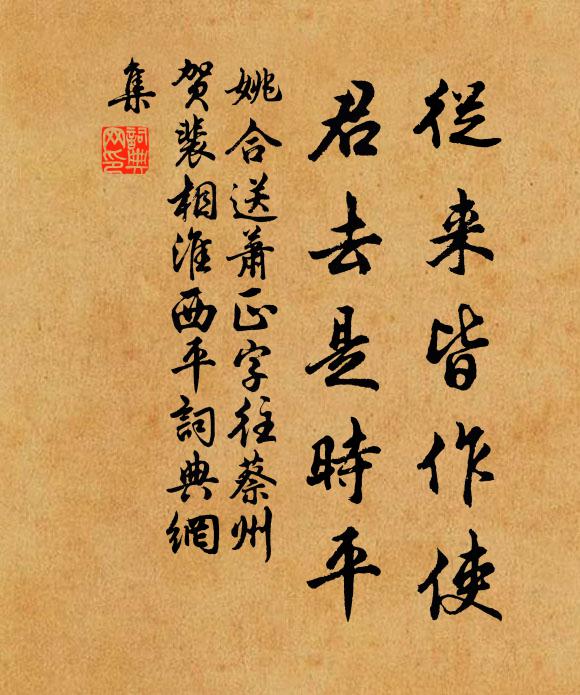 從来皆作使
君去是時平
姚合送蕭正字往蔡州
贺裴相淮西平詞典網
集
詞典
网印